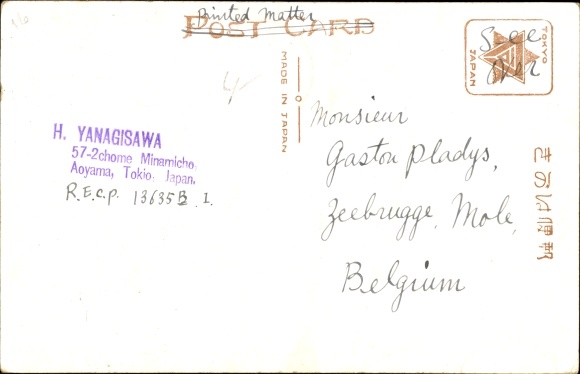 Printed Matter
POST CARD
See
over
TOKYO
JAPAN
MADE IN JAPAN
H. YANAGISAWA
57-2chome Minamicho,
Aoyama, Tokio, Japan.
R.E.C.P. 13635B.I.
Monsieur
Gaston Pladys,
Zeebrugge, Mole,
Belgium